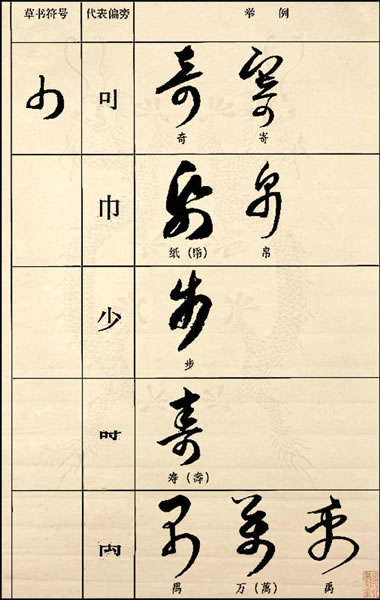 草书符号 代表偏旁 举 例
可
奇 寄
巾
纸(帋) 帛
少
步
禺 万(萬) 禹